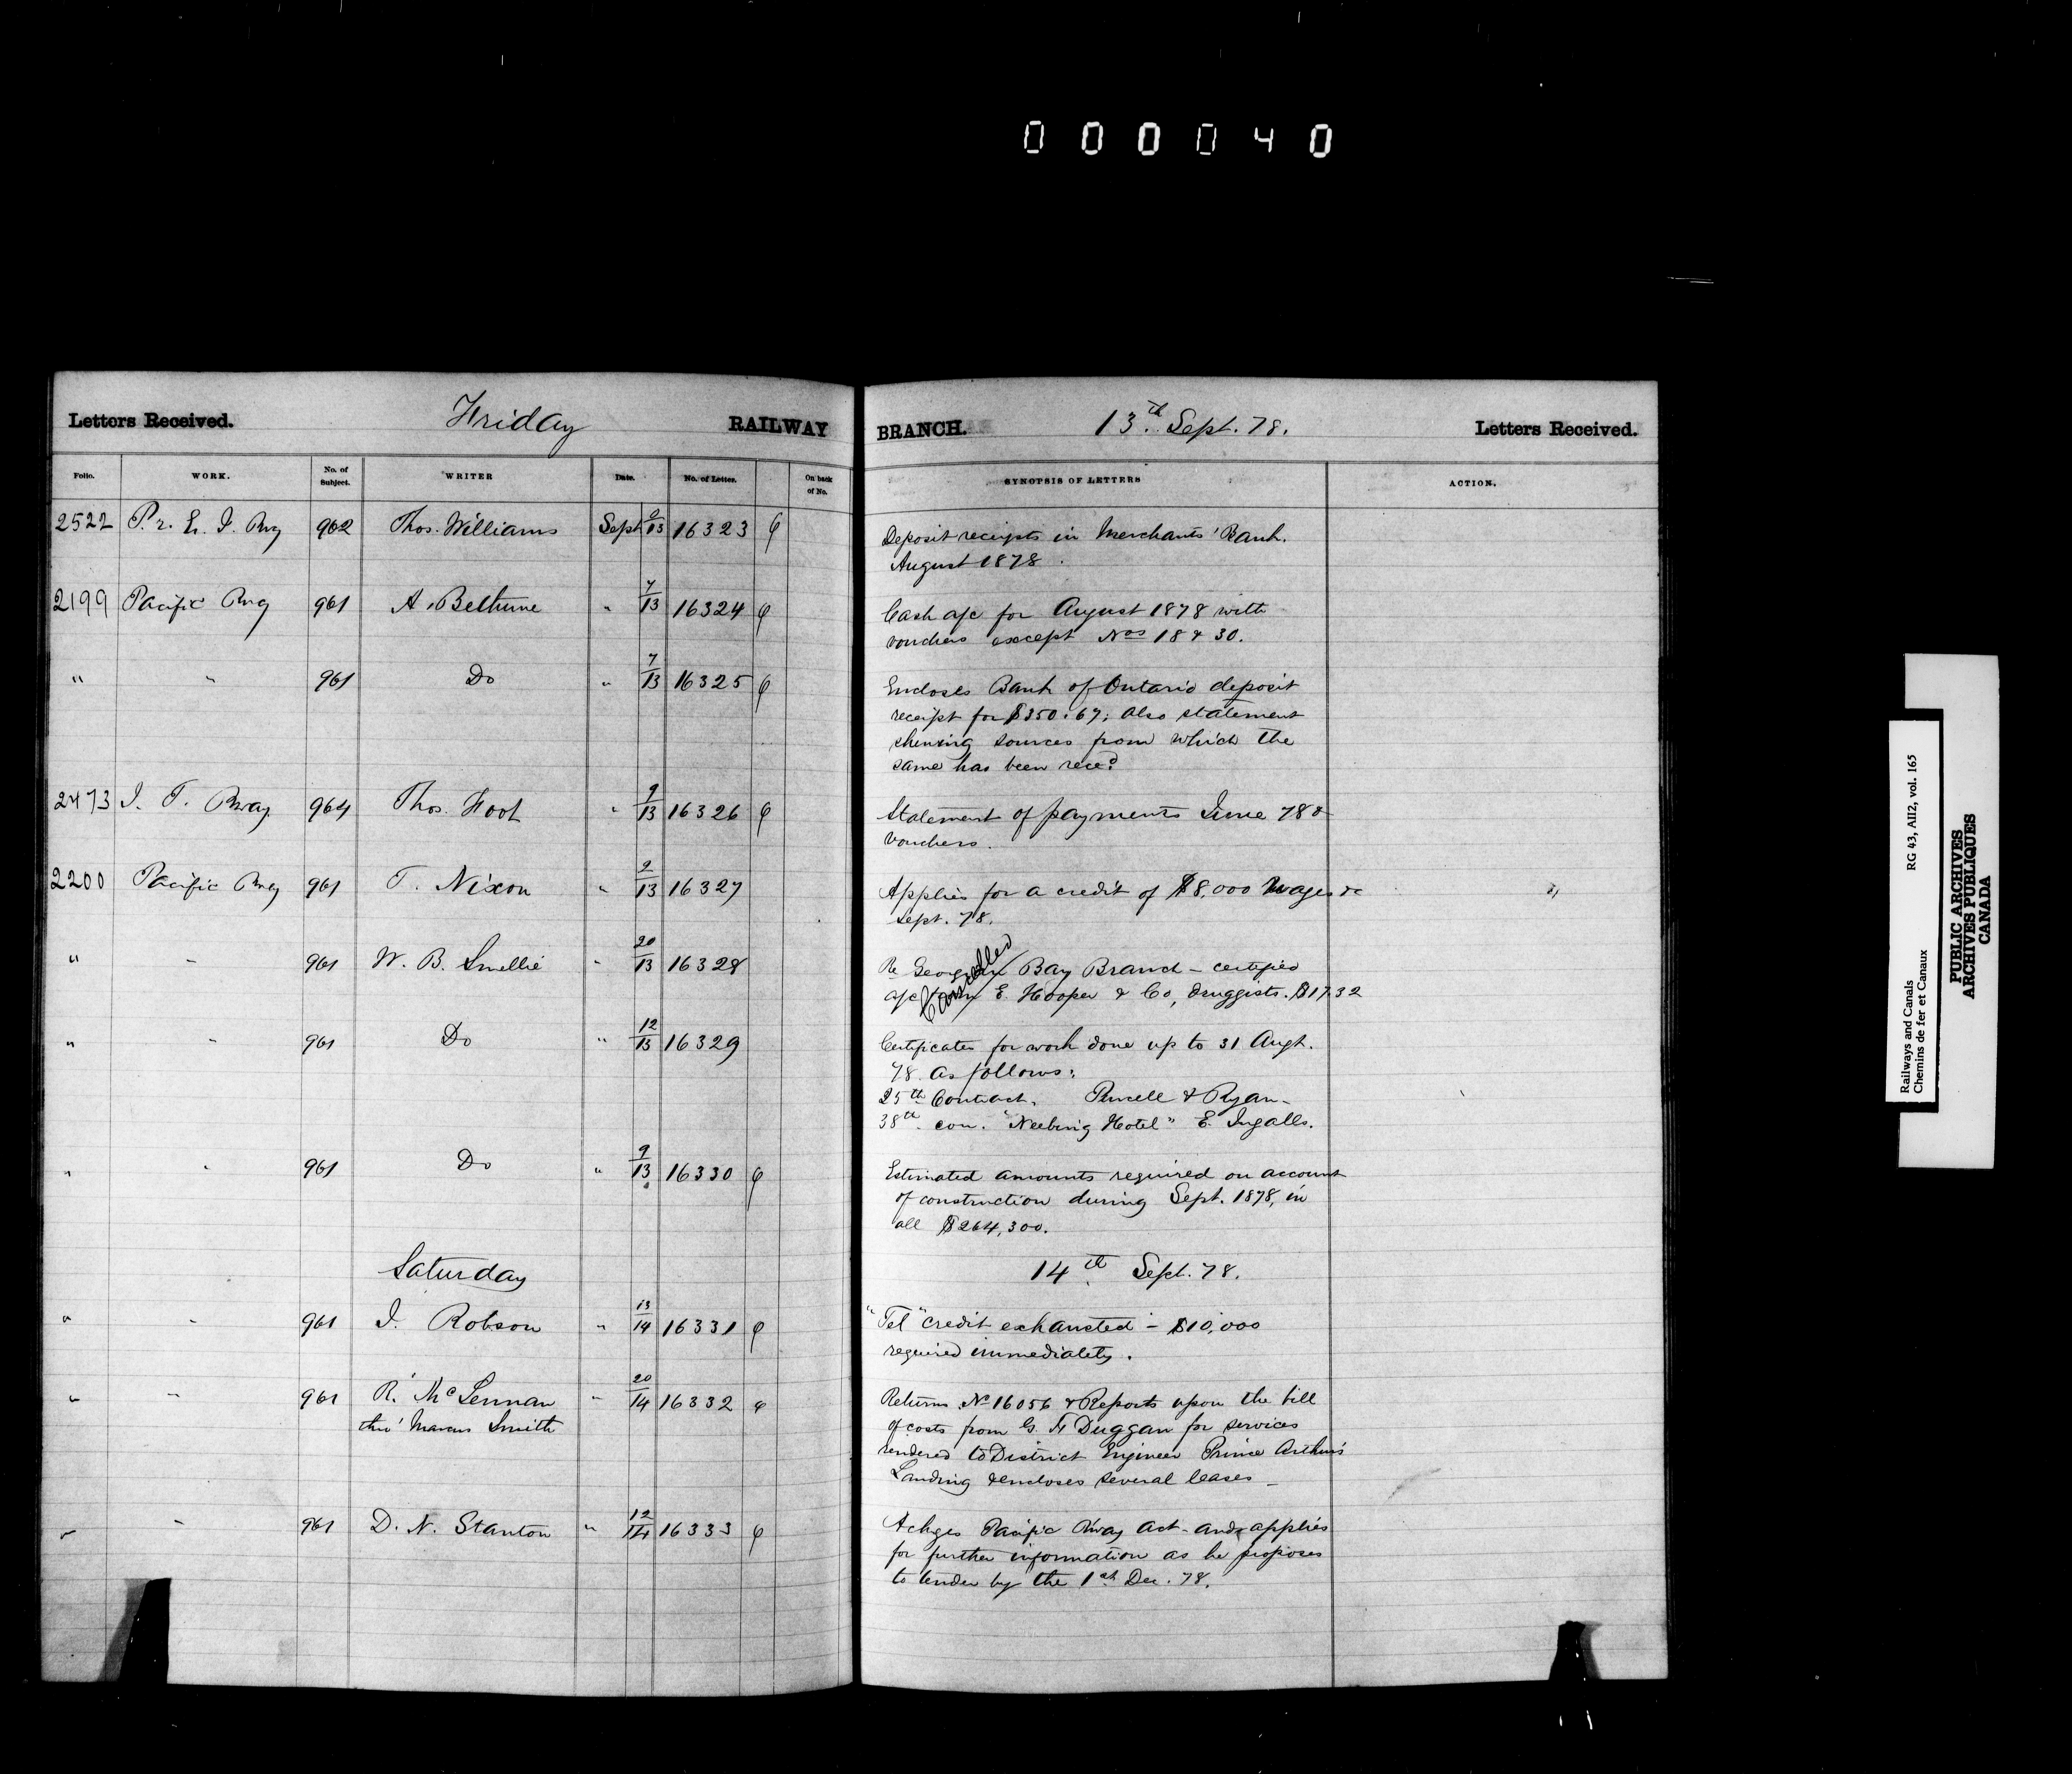 000040
Letters Received. Friday RAILWAY BRANCH. 13th Sept. 78. Letters Received.
Folio. WORK. No. of Subject. WRITER Date. No. of Letter. On back of No. SYNOPSIS OF LETTERS ACTION.
2522 P. r. E. I. Rwy 962 Thos. Williams Sept 9/13 16323 Deposit receipts in Merchants' Bank.
August 1878.
2199 Pacific Rwy 961 A. Bethune " 7/13 16324 Cash a/c for August 1878 with
vouchers except Nos 18 & 30.
" " 961 Do " 7/13 16325 Encloses Bank of Ontario deposit
receipt for $350.67; also statement
shewing sources from which the
same has been recd
2473 I. T. Rway. 964 Thos. Foot " 9/13 16326 Statement of payments June 78 &
vouchers.
2200 Pacific Rwy 961 T. Nixon " 2/13 16327 Applies for a credit of $8,000 Wages &c
Sept. 78.
" " 961 W. B. Smellie " 20/13 16328 Re Georgian Bay Branch - certified
a/c from E. Hooper & Co, druggists. $17.32
Cancelled
" " 961 Do " 12/13 16329 Certificates for work done up to 31 Augt.
78. as follows:
25th Contract. Purcell & Ryan-
38th. con. "Neebing Hotel" E. Ingalls.
" " 961 Do " 9/13 16330 Estimated amounts required on account
of construction during Sept. 1878, in
all $264,300.
Saturday 14th Sept. 78.
" " 961 J. Robson " 13/14 16331 "Tel" credit exhausted - $10,000
required immediately.
" " 961 R. McLennan " 20/14 16332 Returns No 16056 & Reports upon the bill
thro' Marcus Smith of costs from G. H Duggan for services
rendered to District Engineer Prince Arthur's
Landing & encloses several leases -
" " 961 D. N. Stanton " 12/14 16333 Ackges Pacific R'way Act - and applies
for further information as he proposes
to tender by the 1st Dec. 78.
Railways and Canals RG 43, AII2, vol. 165
Chemins de fer et Canaux
PUBLIC ARCHIVES
ARCHIVES PUBLIQUES
CANADA